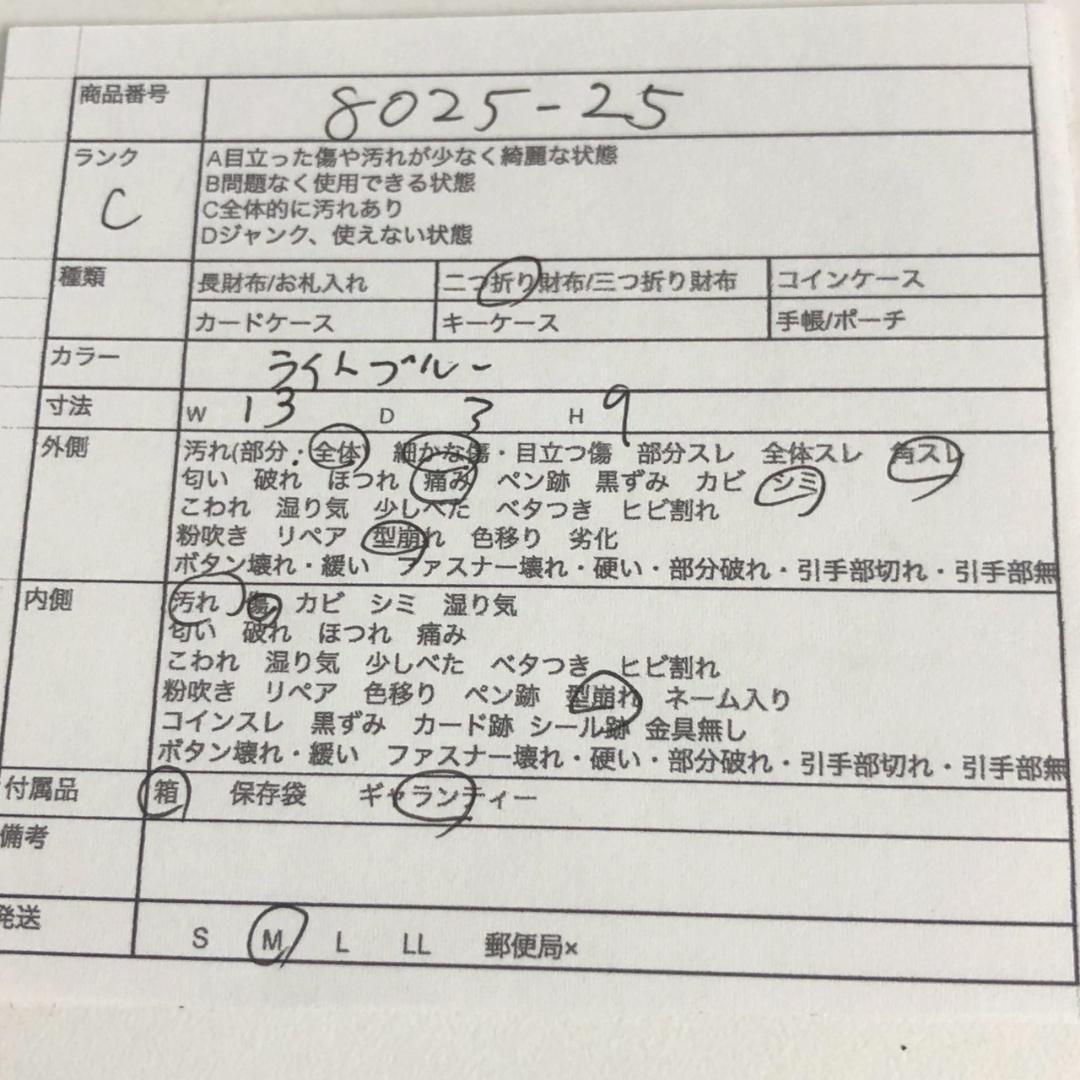 商品番号 8025-25
ランク C
A目立った傷や汚れが少なく綺麗な状態
B問題なく使用できる状態
C全体的に汚れあり
Dジャンク、使えない状態
種類 長財布/お札入れ 二つ折り財布/三つ折り財布 コインケース
カードケース キーケース 手帳/ポーチ
カラー ライトブルー
寸法 W 13 D 3 H 9
外側 汚れ(部分・全体) 細かな傷・目立つ傷 部分スレ 全体スレ 角スレ
匂い 破れ ほつれ 痛み ペン跡 黒ずみ カビ シミ
こわれ 湿り気 少しべた ベタつき ヒビ割れ
粉吹き リペア 型崩れ 色移り 劣化
ボタン壊れ・緩い ファスナー壊れ・硬い・部分破れ・引手部切れ・引手部無
内側 汚れ 傷 カビ シミ 湿り気
匂い 破れ ほつれ 痛み
こわれ 湿り気 少しべた ベタつき ヒビ割れ
粉吹き リペア 色移り ペン跡 型崩れ ネーム入り
コインスレ 黒ずみ カード跡 シール跡 金具無し
ボタン壊れ・緩い ファスナー壊れ・硬い・部分破れ・引手部切れ・引手部無
付属品 箱 保存袋 ギャランティー
備考
発送 S M L LL 郵便局×